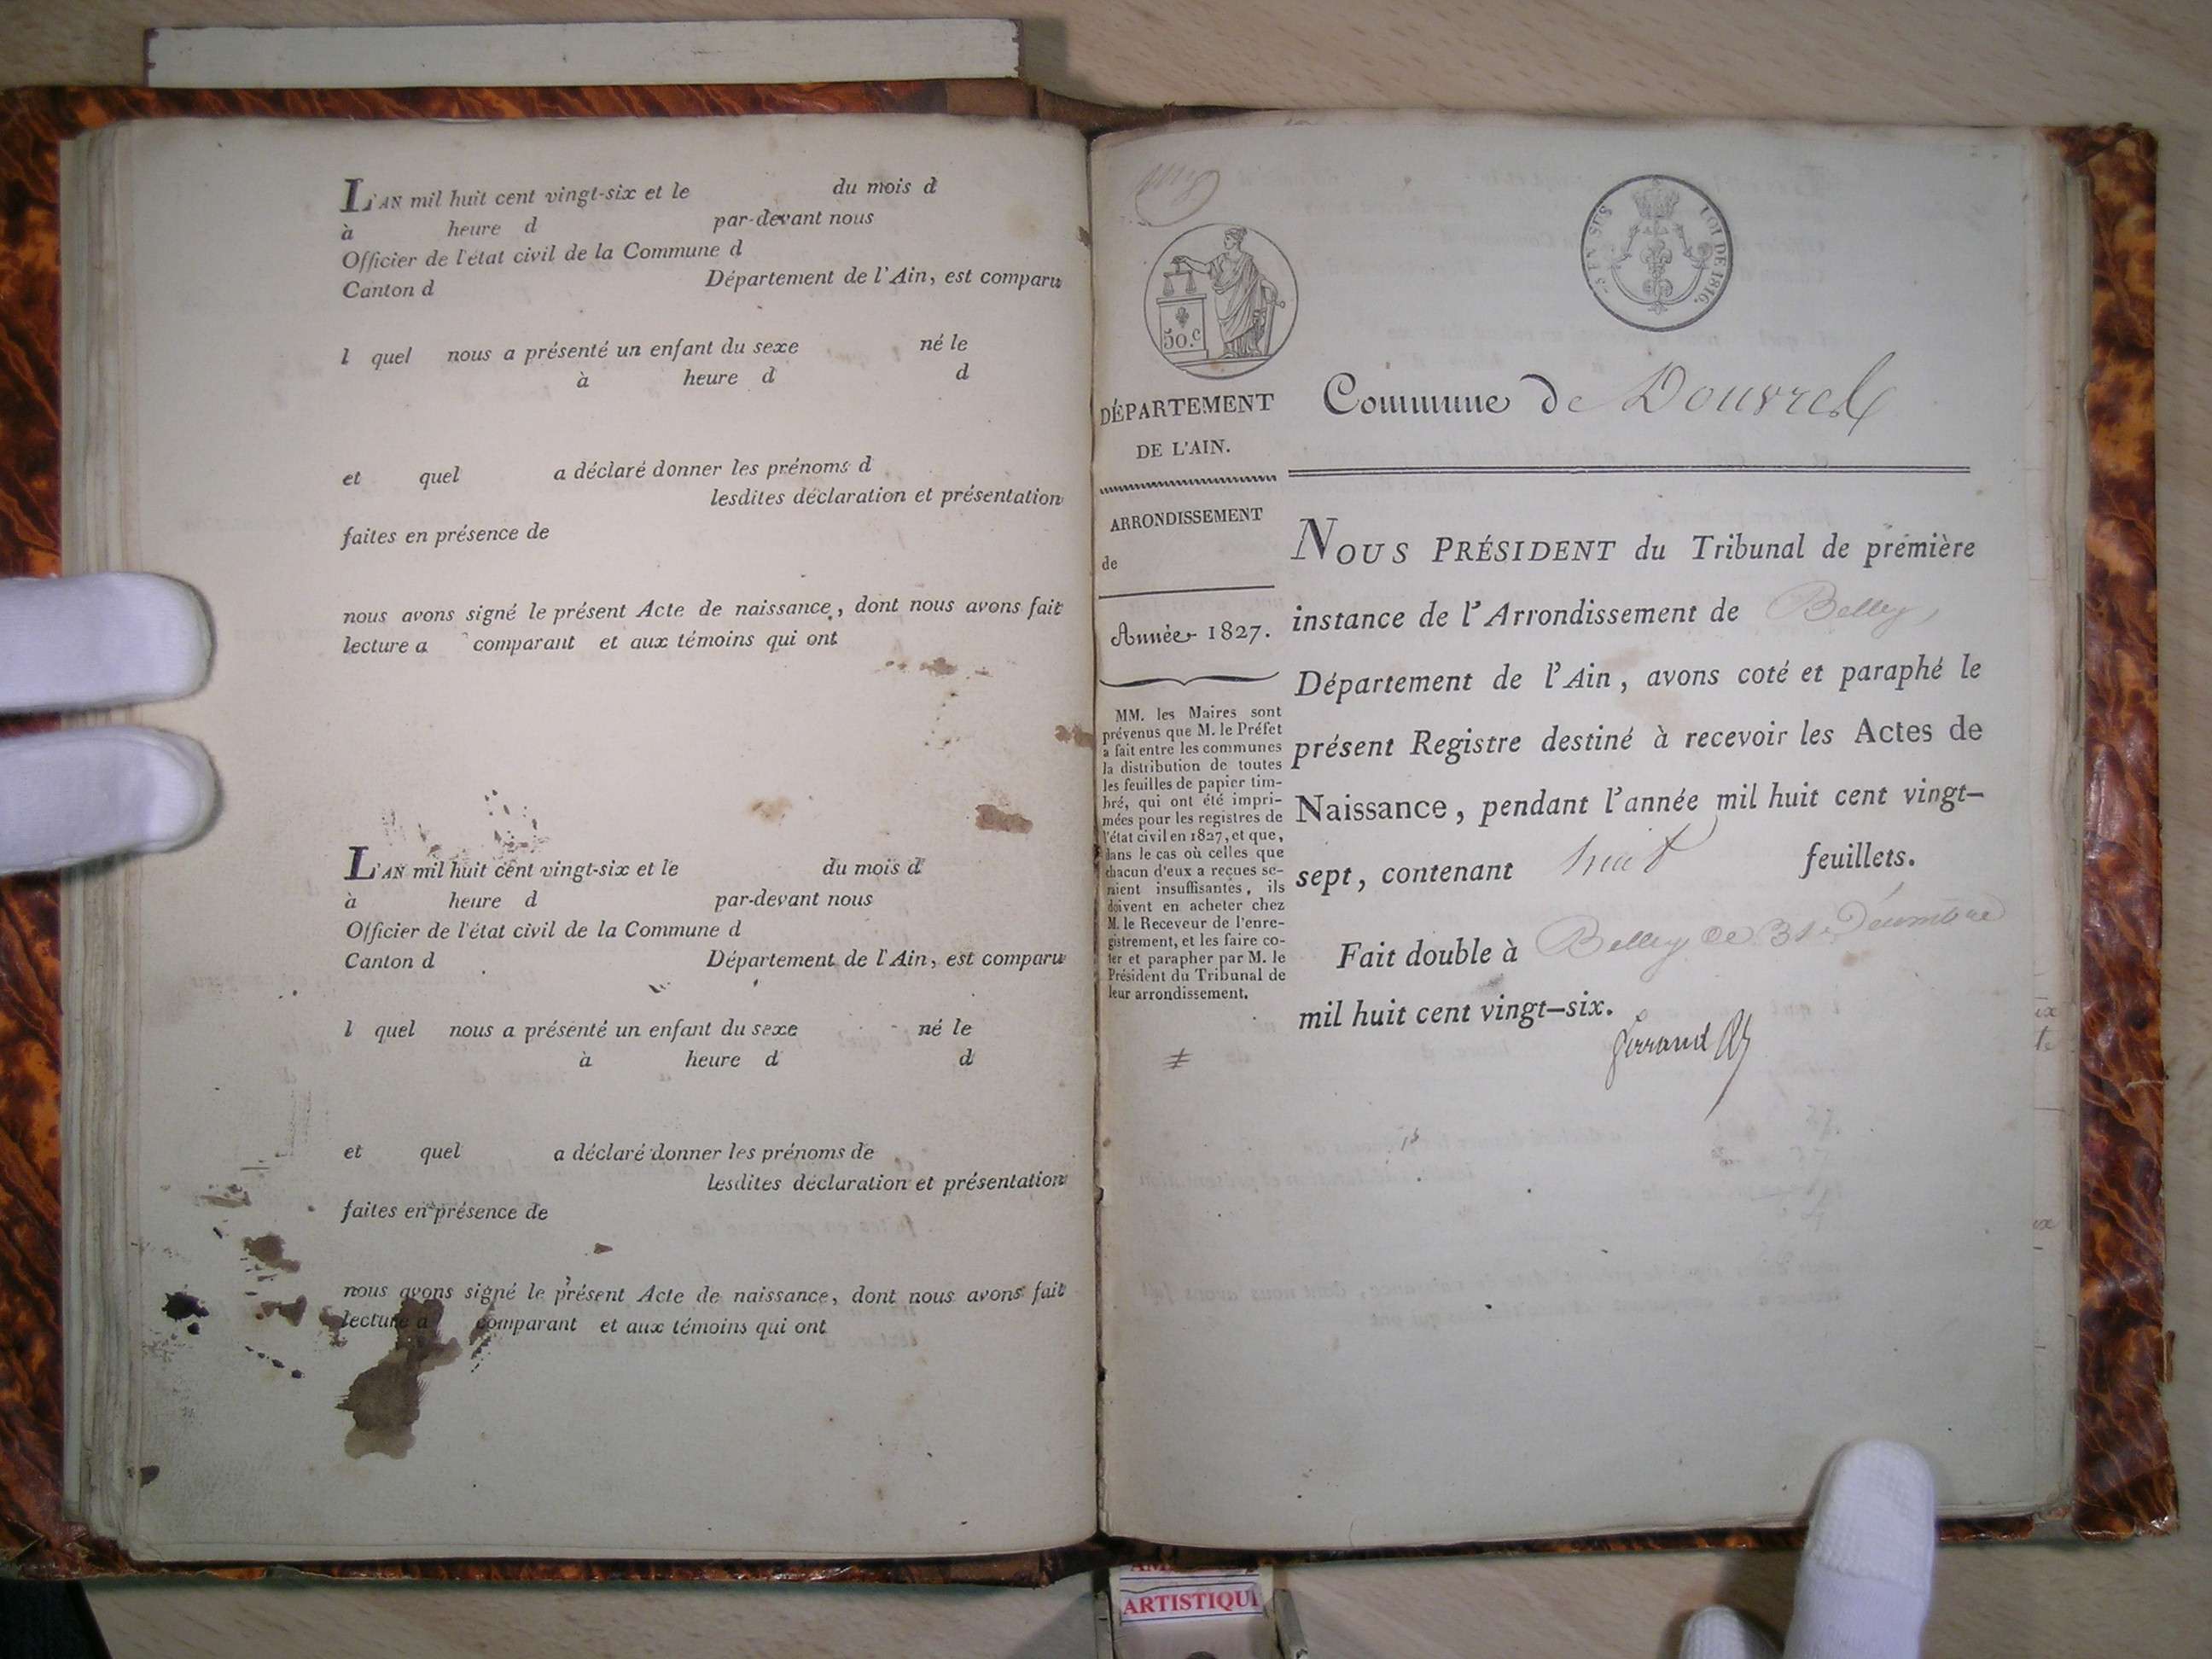 L'AN mil huit cent vingt-six et le du mois d
à heure d par-devant nous
Officier de l'état civil de la Commune d
Canton d Département de l'Ain, est comparu
l quel nous a présenté un enfant du sexe né le
à heure d d
et quel a déclaré donner les prénoms d
lesdites déclaration et présentation
faites en présence de
nous avons signé le présent Acte de naissance, dont nous avons fait
lecture a comparant et aux témoins qui ont
L'AN mil huit cent vingt-six et le du mois d
à heure d par-devant nous
Officier de l'état civil de la Commune d
Canton d Département de l'Ain, est comparu
l quel nous a présenté un enfant du sexe né le
à heure d d
et quel a déclaré donner les prénoms de
lesdites déclaration et présentation
faites en présence de
nous avons signé le présent Acte de naissance, dont nous avons fait
lecture a comparant et aux témoins qui ont
50.c
EN SUS LOI DE 1816.
DÉPARTEMENT
DE L'AIN.
ARRONDISSEMENT
de
Année 1827.
MM. les Maires sont
prévenus que M. le Préfet
a fait entre les communes
la distribution de toutes
les feuilles de papier tim-
bré, qui ont été impri-
mées pour les registres de
l'état civil en 1827, et que,
dans le cas où celles que
chacun d'eux a reçues se-
raient insuffisantes, ils
doivent en acheter chez
M. le Receveur de l'enre-
gistrement, et les faire co-
ter et parapher par M. le
Président du Tribunal de
leur arrondissement.
Commune de Douvres
NOUS PRÉSIDENT du Tribunal de première
instance de l'Arrondissement de Belley,
Département de l'Ain, avons coté et paraphé le
présent Registre destiné à recevoir les Actes de
Naissance, pendant l'année mil huit cent vingt-
sept, contenant huit feuillets.
Fait double à Belley ce 31 Décembre
mil huit cent vingt-six.
ARTISTIQU